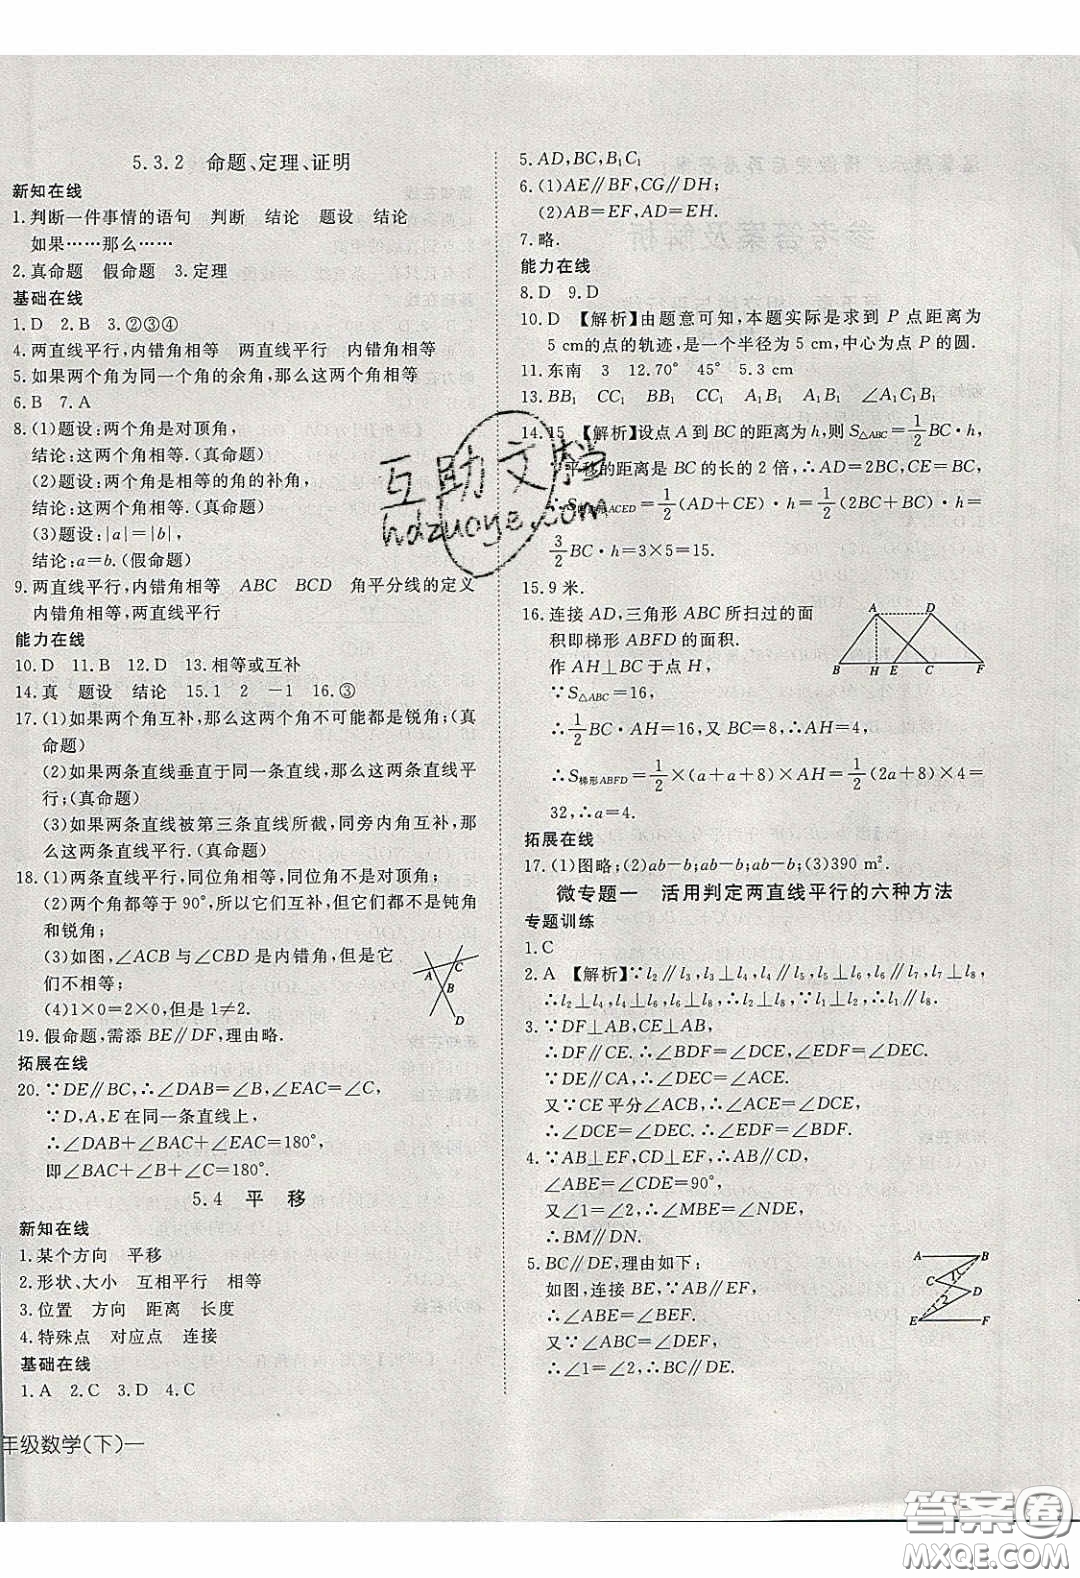 5.3.2 命题、定理、证明
新知在线
1.判断一件事情的语句 判断 结论 题设 结论
如果……那么……
2.真命题 假命题 3.定理
基础在线
1.D 2.B 3.②③④
4.两直线平行,内错角相等 两直线平行 内错角相等
5.如果两个角为同一个角的余角,那么这两个角相等
6.B 7.A
8.(1)题设:两个角是对顶角,
结论:这两个角相等.(真命题)
(2)题设:两个角是相等的角的补角,
结论:这两个角相等.(真命题)
(3)题设:|a|=|b|,
结论:a=b.(假命题)
9.两直线平行,内错角相等 ABC BCD 角平分线的定义
内错角相等,两直线平行
能力在线
10.D 11.B 12.D 13.相等或互补
14.真 题设 结论 15.1 2 -1 16.③
17.(1)如果两个角互补,那么这两个角不可能都是锐角;(真
命题)
(2)如果两条直线垂直于同一条直线,那么这两条直线平
行;(真命题)
(3)如果两条直线被第三条直线所截,同旁内角互补,那
么这两条直线平行.(真命题)
18.(1)两条直线平行,同位角相等,同位角不是对顶角;
(2)两个角都等于90°,所以互补,但它们都不是钝角
和锐角;
(3)如图,∠ACB与∠CBD是内错角,但它
们不相等;
(4)1×0=2×0,但是1≠2.
A C B D
19.假命题,需添BE∥DF,理由略.
拓展在线
20.∵DE∥BC,∴∠DAB=∠B,∠EAC=∠C,
∵D,A,E在同一条直线上,
∴∠DAB+∠BAC+∠EAC=180°,
即∠BAC+∠B+∠C=180°.
5.4 平 移
新知在线
1.某个方向 平移
2.形状、大小 互相平行 相等
3.位置 方向 距离 长度
4.特殊点 对应点 连接
基础在线
1.A 2.C 3.D 4.C
年级数学(下)一
5.AD,BC,B₁C₁
6.(1)AE∥BF,CG∥DH;
(2)AB=EF,AD=EH.
7.略.
能力在线
8.D 9.D
10.D 【解析】由题意可知,本题实际是求到P点距离为
5 cm的点的轨迹,是一个半径为5 cm,中心为点P的圆.
11.东南 3 12.70° 45° 5.3 cm
13.BB₁ CC₁ BB₁ CC₁ A₁B₁ A₁C₁ ∠A₁C₁B₁
14.15 【解析】设点A到BC的距离为h,则S△ABC=1/2BC·h,
平移的距离是BC的长的2倍,∴AD=2BC,CE=BC,
∴S ACED=1/2(AD+CE)·h=1/2(2BC+BC)·h=
3/2BC·h=3×5=15.
15.9米.
16.连接AD,三角形ABC所扫过的面
积即梯形ABFD的面积.
作AH⊥BC于点H,
∵S△ABC=16,
A D B H E C F
∴1/2BC·AH=16,又BC=8,∴AH=4,
∴S梯形ABFD=1/2×(a+a+8)×AH=1/2(2a+8)×4=
32,∴a=4.
拓展在线
17.(1)图略;(2)ab-b;ab-b;ab-b;(3)390 m².
微专题一 活用判定两直线平行的六种方法
专题训练
1.C
2.A 【解析】∵l₂∥l₃,l₃⊥l₄,l₄∥l₅,l₅⊥l₆,l₆∥l₇,l₇⊥l₈,
∴l₂⊥l₄,l₄⊥l₆,l₆⊥l₈,∴l₂⊥l₈.∵l₁⊥l₂,∴l₁∥l₈.
3.∵DF⊥AB,CE⊥AB,
∴DF∥CE.∴∠BDF=∠DCE,∠EDF=∠DEC.
又∵CE平分∠ACB,∴∠DCE=∠ACE.
∵∠DCE=∠DEC.∴∠EDF=∠BDF.
4.∵BE⊥FD,∴∠ABE=∠CDE=90°,
又∠1=∠2,∴∠MBE=∠NDE,
∴BM∥DN.
5.BC∥DE,理由如下:
如图,连接BE,∵AB∥EF,
∴∠ABE=∠BEF.
又∵∠ABC=∠DEF,
∴∠1=∠2,∴BC∥DE.
A B C 1 D 2 E F
互助文档
hdzuoye.com
答案圈
MXQE.COM